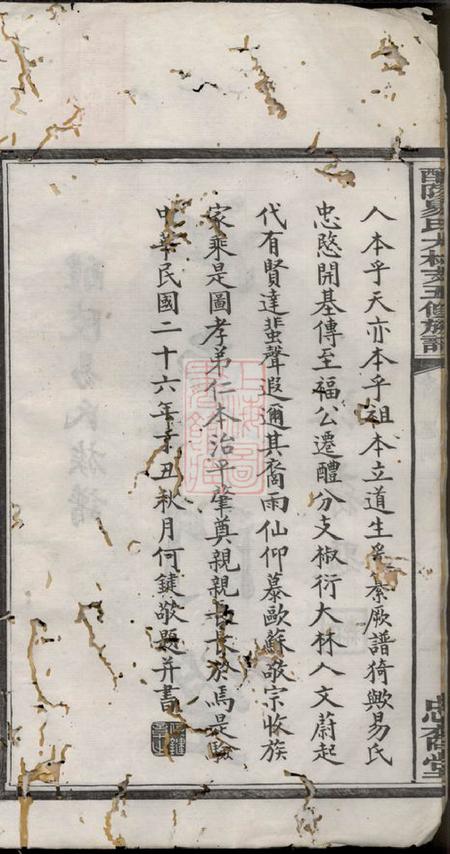 醴陵易氏大林支五修族譜
人本乎天亦本乎祖本立道生爰纂厥譜猗歟易氏
忠愍開基傳至福公遷醴分支椒衍大林人文蔚起
代有賢達蜚聲遐邇其裔雨仙仰慕歐蘇敬宗收族
家乘是圖孝弟仁本治平肇奠親親長長於焉是驗
中華民國二十六年辛丑秋月何鍵敬題并書
上海圖書館藏